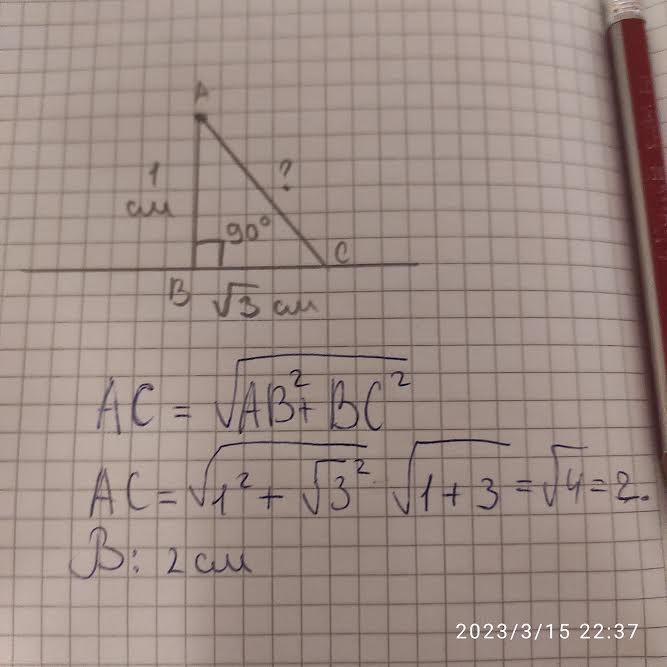 A
1
см
?
90°
C
B
√3 см
AC = √AB² + BC²
AC = √1² + √3² √1 + 3 = √4 = 2.
В: 2 см
2023/3/15 22:37